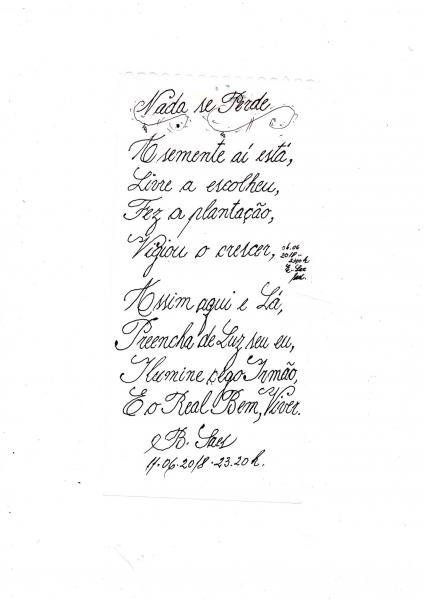 Nada se Perde
A semente aí está,
Livre a escolheu,
Fez a plantação,
Vigiou o crescer,
Assim aqui e Lá,
Preencha de Luz seu eu,
Ilumine cego Irmão,
E o Real Bem, Viver.
B. Saes
11.06.2018.23.20h.